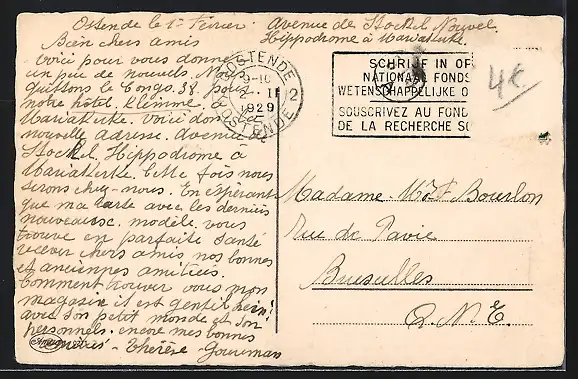 Ostende le 1er Février. Avenue de Stockel Nouvel
Hippodrome à Mariakerke.
Bien chers amis
Voici pour vous donner
un peu de nouvels. Nous
quittons le Congo. 38. pour
notre hotel. Klemme. à
Mariakerke. Voici donc la
nouvelle adresse. Avenue de
Stockel. Hippodrome à
Mariakerke. Cette fois nous
serons chez-nous. En espérant
que ma carte avec les derniers
nouveautés. modèle. vous
trouve en parfaite santé
recever chers amis nos bonnes
et anciennes amitiées.
Comment trouver vous mon
magasin il est gentil hein!
avec son petit monde et son
personnels. encore mes bonnes
- Thérèse - Gourman
OOSTENDE
9-10
1 II
1929
2
OSTENDE
SCHRIJF IN OP
NATIONAAL FONDS
WETENSCHAPPELIJKE O
SOUSCRIVEZ AU FOND
DE LA RECHERCHE SC
4€
Madame Bourlon
Rue de Pavie
Bruxelles
Q. N. E.